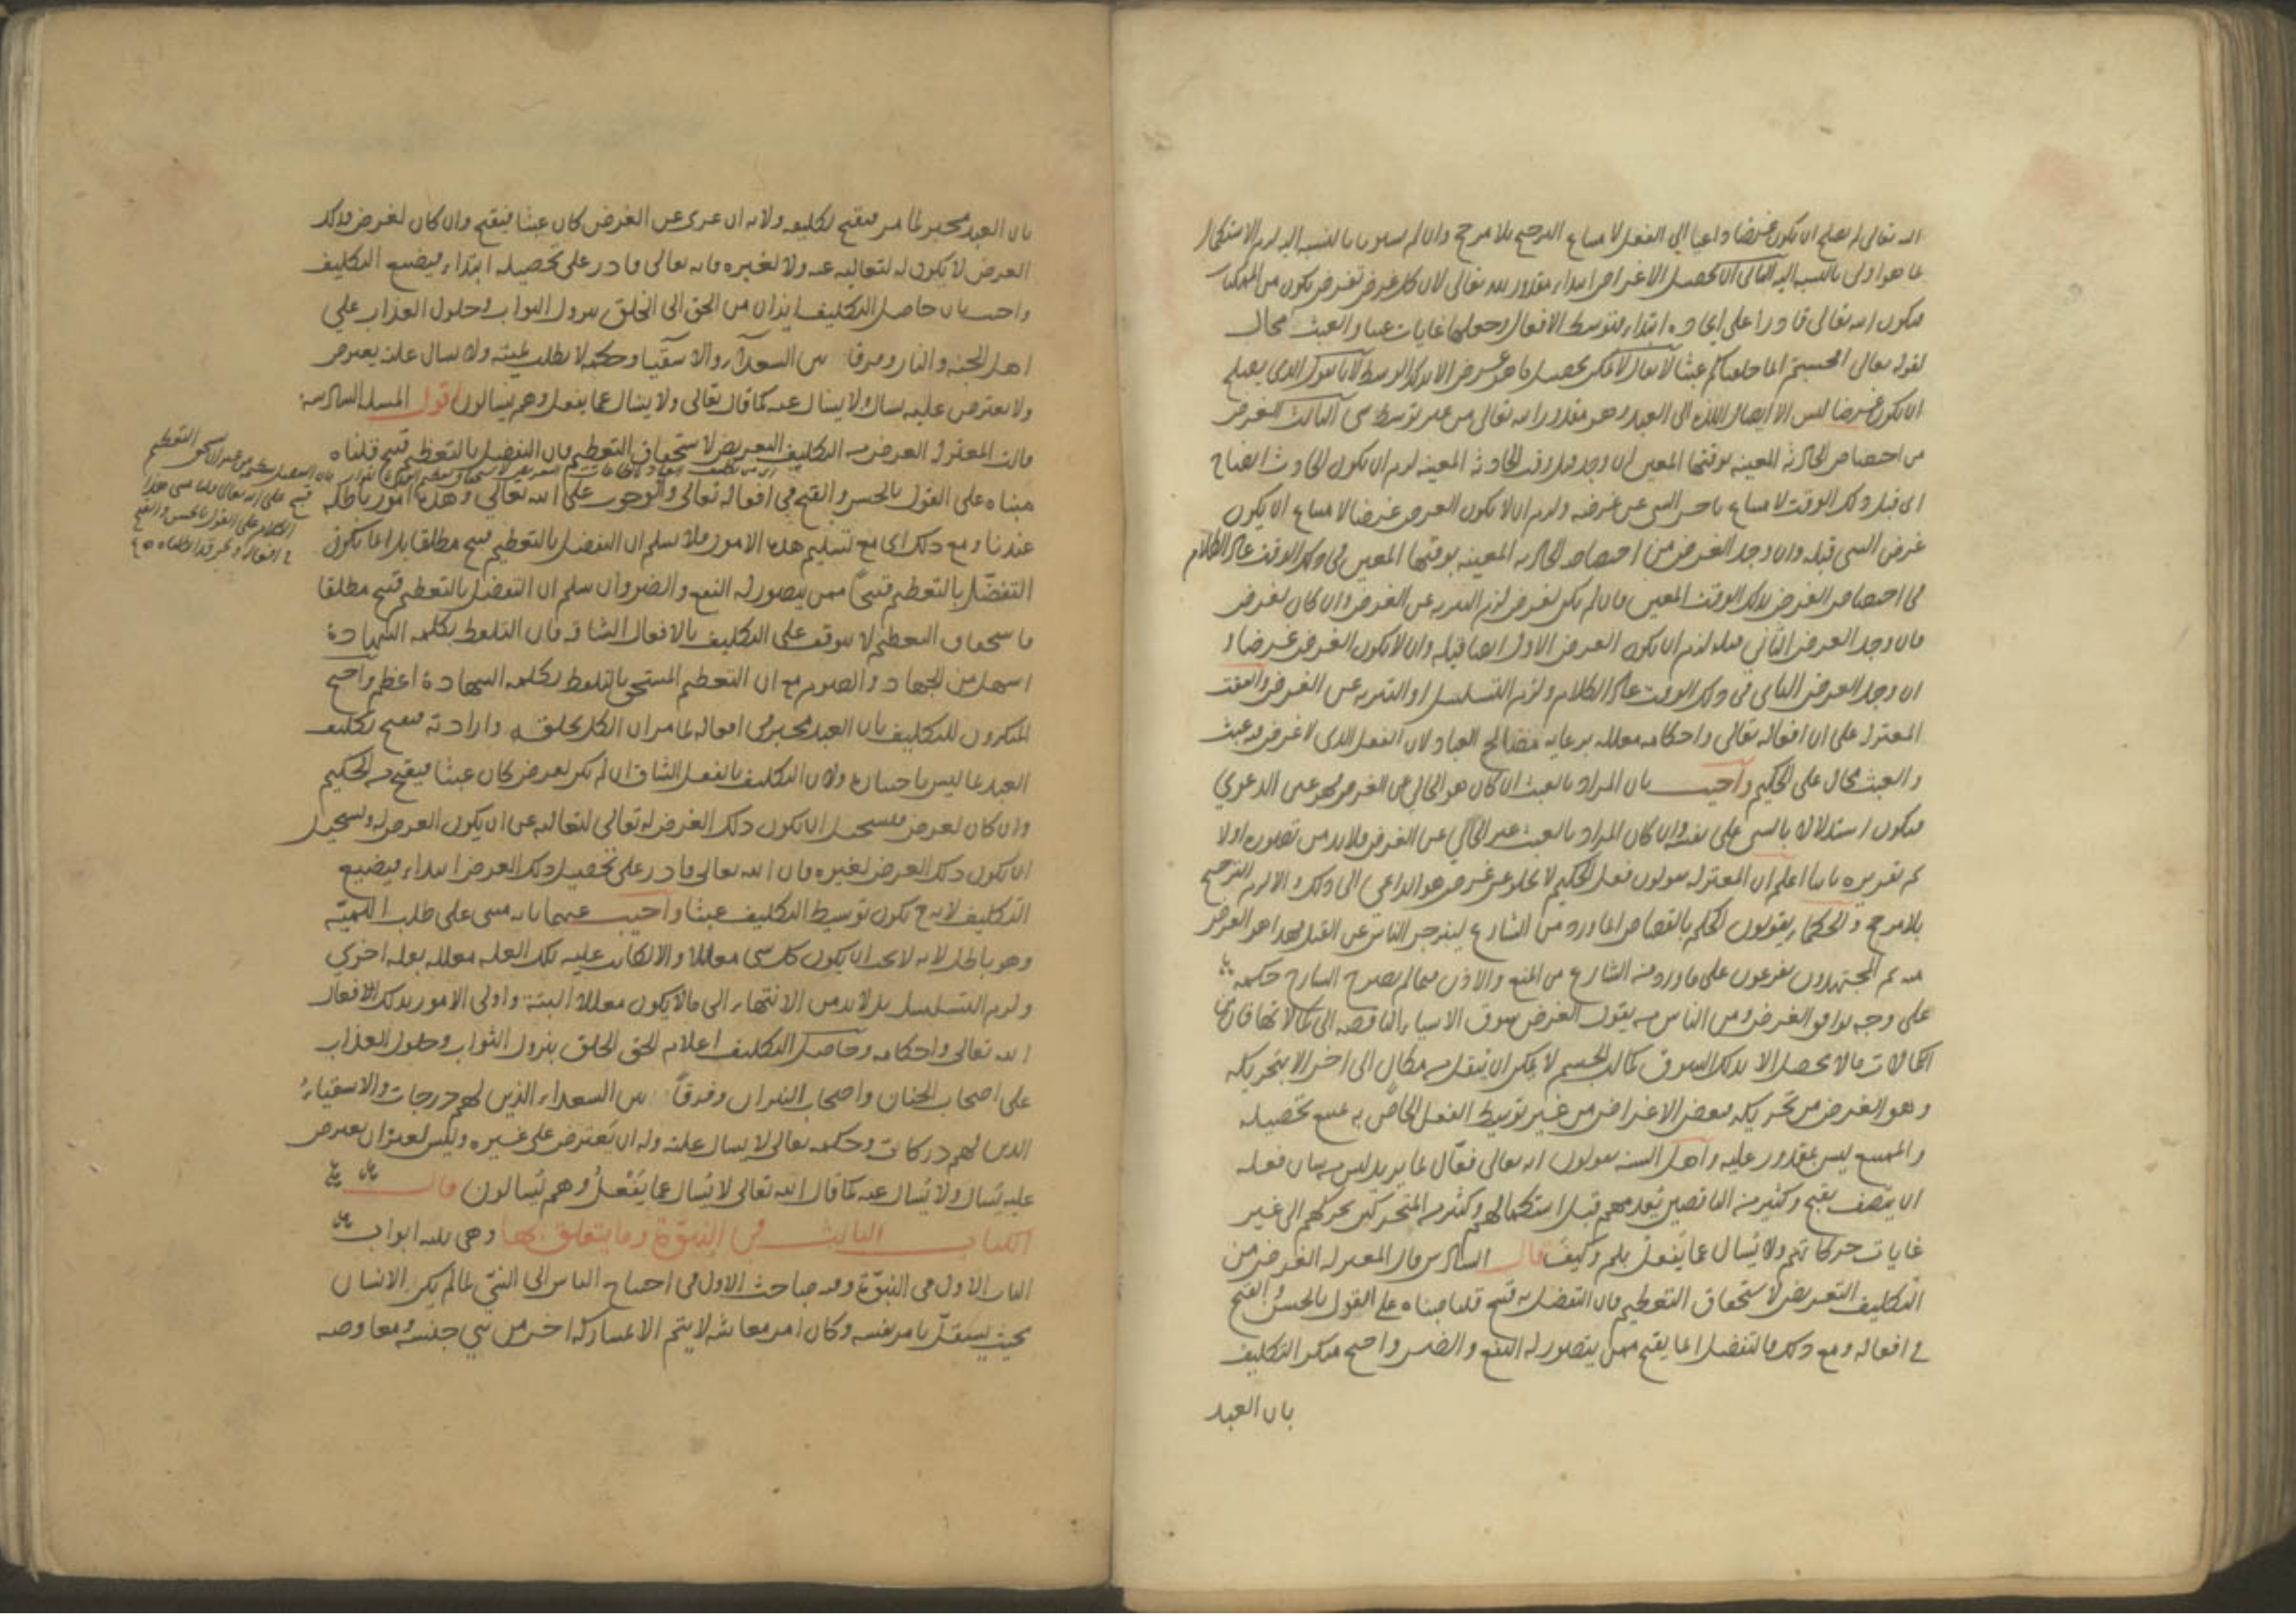 اليه تعالى لم يصلح ان يكون غرضا داعيا الى الفعل لامتناع الترجيح بلا مرجح وان لم يستويا بالنسبة اليه لزم الاستكمال
بما هو اولى بالنسبة اليه الثاني ان تحصيل الاغراض ابتداء مقدور لله تعالى لان كل غرض يفرض يكون من الممكنات
فيكون الله تعالى قادرا على ايجاده ابتداء فتوسط الافعال وجعلها غايات عبثا والعبث محال
لقوله تعالى افحسبتم انما خلقناكم عبثا لا يقال لا يمكن تحصيل ما هو غرض الا بذلك الوسط لانا نقول الذي يصلح
ان يكون غرضا ليس الا ايصال اللذة الى العبد وهو مقدور الله تعالى من غير توسط شى الثالث الغرض
من اختصاص الحادثة المعينة بوقتها المعين ان وجد قبل وقت الحادثة المعينة لزم ان يكون الحادث ايضا
اى قبل ذلك الوقت لامتناع تاخر الشى عن غرضه ولزم ان لا يكون الغرض غرضا لامتناع ان يكون
غرض الشى قبله وان وجد الغرض من اختصاص الحادثة المعينة بوقتها المعين فى ذلك الوقت عاد الكلام
فى اختصاص الغرض بذلك الوقت المعين فان لم يكن لغرض لزم التعرية عن الغرض وان كان لغرض
فان وجد الغرض الثاني قبله لزم ان يكون الغرض الاول ايضا قبله وان لا يكون الغرض غرضا و
ان وجد الغرض الثاني في ذلك الوقت عاد الكلام ولزم التسلسل او التعرية عن الغرض واتفقت
المعتزلة على ان افعاله تعالى واحكامه معللة برعاية مصالح العباد لان الفعل الذى لا غرض فيه عبث
والعبث محال على الحكيم واجيب بان المراد بالعبث ان كان هو الخالي عن الغرض فهو عين الدعوي
فيكون استدلالا بالشى على نفسه وان كان المراد بالعبث غير الخالي عن الغرض فلا بد من تصويره اولا
ثم تقريره ثانيا اعلم ان المعتزلة يقولون فعل الحكيم لا يخلو عن غرض هو الداعى الى ذلك والا لزم الترجيح
بلا مرجح والحكماء يقولون الحكم بالقصاص انما ورد من الشارع لينزجر الناس عن القتل فهذا هو الغرض
منه ثم المجتهدون يفرعون على ما ورد من الشارع من المنع والاذن فيما لم يصرح الشارع حكمه
على وجه يوافق الغرض ومن الناس من يقول الغرض سوق الاشياء الناقصة الى كمالاتها فان من
الكمالات ما لا يحصل الا بذلك السوق كما ان الجسم لا يمكن ان ينقل من مكان الى اخر الا بتحريكه
وهو الغرض من تحريكه فبعض الاغراض من غير توسط الفعل الخاص به يمتنع تحصيله
والممتنع ليس بمقدور عليه واهل السنة يقولون انه تعالى فعال لما يريد ليس من شان فعله
ان يتصف بقبح وكثير من الناقصين يعدمهم قبل استكمالهم وكثير من المتحركين يحركهم الى غير
غايات حركاتهم ولا يسال عما يفعل بلم وكيف قال السادس قال المعتزلة الغرض من
التكليف التعريض لاستحقاق التعظيم فان التفضل به قبيح قلنا مبناه على القول بالحسن والقبح
فى افعاله ومع ذلك فالتفضل انما يقبح ممن يتصور له النفع والضر واحتج منكر التكليف
بان العبد
بان العبد مجبر لما مر فيقبح تكليفه ولانه ان عرى عن الغرض كان عبثا فيقبح وان كان لغرض فذلك
الغرض لا يكون له لتعاليه عنه ولا لغيره فانه تعالى قادر على تحصيله ابتداء فيضيع التكليف
واجيب بان حاصل التكليف ايذان من الحق الى الخلق بنزول الثواب وحلول العذاب على
اهل الجنة والنار وفرقا بين السعداء والاشقيا وحكمه لا يطلب لميته ولا يسال علته يعترض
ولا يعترض عليه يسال ولا يسال عنه كما قال تعالى ولا يسال عما يفعل وهم يسالون اقول المسلة السادسة
قالت المعتزلة الغرض من التكليف التعريض لاستحقاق التعظيم فان التفضل بالتعظيم قبيح قلنا
مبناه على القول بالحسن والقبح في افعاله تعالى والوجوب على الله تعالي وهذه امور باطلة
عندنا ومع ذلك اى مع تسليم هذه الامور فلا نسلم ان التفضل بالتعظيم قبيح مطلقا بل انما يكون
التفضل بالتعظيم قبيحا ممن يتصور له النفع والضر وان سلم ان التفضل بالتعظيم قبيح مطلقا
فاستحقاق التعظيم لا يتوقف على التكليف بالافعال الشاقة فان التلفظ بكلمة الشهادة
اسهل من الجهاد والصوم مع ان التعظيم المستحق بالتلفظ بكلمة الشهادة اعظم واحتج
المنكرون للتكليف بان العبد مجبر في افعاله لما مر ان الكل بخلقه وارادته فيقبح تكليف
العبد بما ليس باختياره ولان التكليف بالفعل الشاق ان لم يكن لغرض كان عبثا فيقبح من الحكيم
وان كان لغرض فيستحيل ان يكون ذلك الغرض له تعالى لتعاليه عن ان يكون الغرض له ويستحيل
ان يكون ذلك الغرض لغيره فان الله تعالى قادر على تحصيل ذلك الغرض ابتداء فيضيع
التكليف لانه ح يكون توسيط التكليف عبثا واجيب عنهما بانه مبنى على طلب اللمية
وهو باطل لانه لا يجب ان يكون كل شى معللا والا لكانت علية تلك العلة معللة بعلة اخري
ولزم التسلسل بل لا بد من الانتهاء الى ما لا يكون معللا البتة واولى الامور بذلك افعال
الله تعالى واحكامه وحاصل التكليف اعلام الحق الخلق بنزول الثواب وحلول العذاب
على اصحاب الجنان واصحاب النيران وفرقا بين السعداء الذين لهم درجات والاشقياء
الذين لهم دركات وحكمه تعالى لا يسال علته وله ان يعترض على غيره وليس لغيره ان يعترض
عليه يسال ولا يسال عنه كما قال الله تعالى لا يسال عما يفعل وهم يسالون قال
الكتاب الثالث في النبوة وما يتعلق بها وهى ثلثه ابواب
الباب الاول فى النبوة وفيه مباحث الاول فى احتياج الناس الى النبي لما لم يكن الانسان
بحيث يستقل بامر نفسه وكان امر معاشه لا يتم الا بمشاركة اخر من بني جنسه ومعاوضه